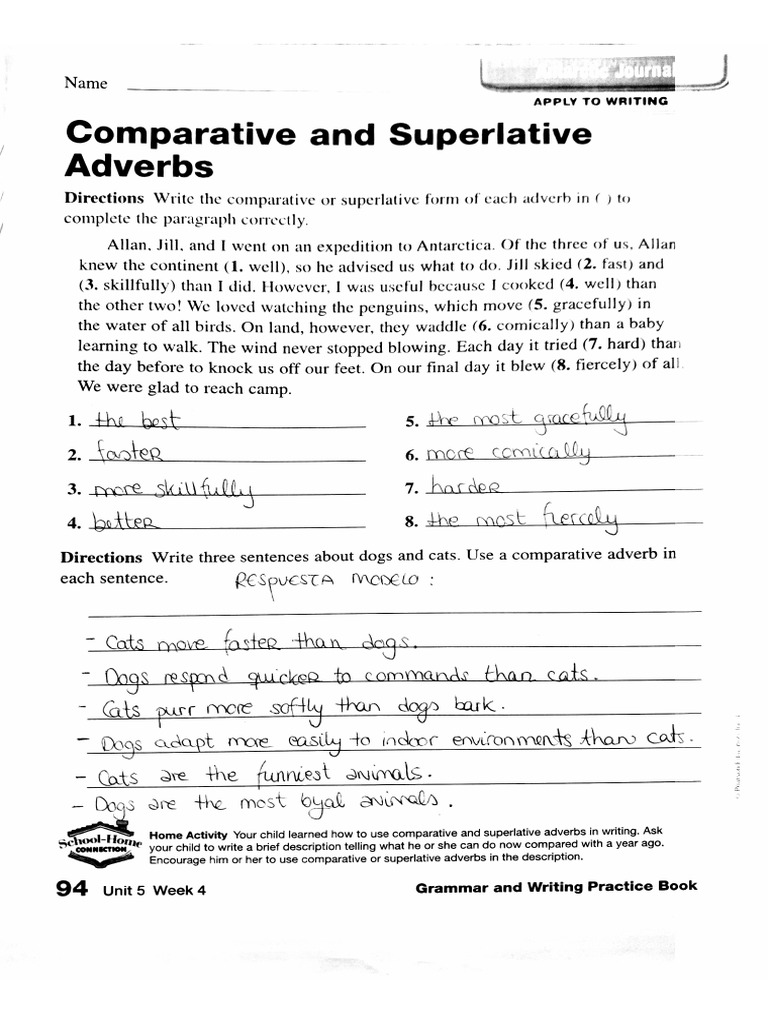 Name
Journal
APPLY TO WRITING
Comparative and Superlative
Adverbs
Directions Write the comparative or superlative form of each adverb in ( ) to
complete the paragraph correctly.
Allan, Jill, and I went on an expedition to Antarctica. Of the three of us, Allan
knew the continent (1. well), so he advised us what to do. Jill skied (2. fast) and
(3. skillfully) than I did. However, I was useful because I cooked (4. well) than
the other two! We loved watching the penguins, which move (5. gracefully) in
the water of all birds. On land, however, they waddle (6. comically) than a baby
learning to walk. The wind never stopped blowing. Each day it tried (7. hard) than
the day before to knock us off our feet. On our final day it blew (8. fiercely) of all.
We were glad to reach camp.
1. the best
2. faster
3. more skillfully
4. better
5. the most gracefully
6. more comically
7. harder
8. the most fiercely
Directions Write three sentences about dogs and cats. Use a comparative adverb in
each sentence. RESPUESTA MODELO :
- Cats move faster than dogs.
- Dogs respond quicker to commands than cats.
- Cats purr more softly than dogs bark.
- Dogs adapt more easily to indoor environments than cats.
- Cats are the funniest animals.
- Dogs are the most byal animals.
School-Home
CONNECTION
Home Activity Your child learned how to use comparative and superlative adverbs in writing. Ask
your child to write a brief description telling what he or she can do now compared with a year ago.
Encourage him or her to use comparative or superlative adverbs in the description.
94 Unit 5 Week 4
Grammar and Writing Practice Book